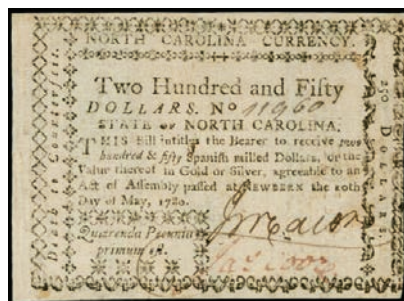 NORTH CAROLINA CURRENCY.
Two Hundred and Fifty
DOLLARS. No 11960
STATE OF NORTH CAROLINA.
THIS Bill intitles the Bearer to receive two
hundred & fifty Spanish milled Dollars, or the
Value thereof in Gold or Silver, agreeable to an
Act of Assembly passed at NEWBERN the 10th
Day of May, 1780.
Quærenda Pecunia
primum est.
Death to Counterfeit.
250 DOLLARS